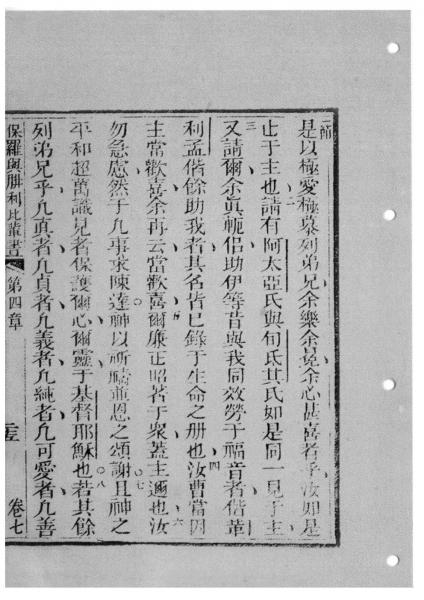 一節
是以極愛極慕列弟兄余樂余冕余心甚喜者乎汝如是
二
止于主也請有阿太亞氏與旬氐其氏如是同一見于主
三
又請爾余眞軛侶助伊等昔與我同效勞于福音者偕革
利孟偕餘助我者其名皆已錄于生命之册也汝曹當因
四
主當歡喜余再云當歡喜爾廉正昭著于衆蓋主邇也汝
五 六
勿急慮然于凡事求陳達神以祈禱並恩之頌謝且神之
七
平和超萬識見者保護爾心爾靈于基督耶穌也若其餘
八
列弟兄乎凡真者凡貞者凡義者凡純者凡可愛者凡善
保羅與腓利比輩書 第四章 卷七